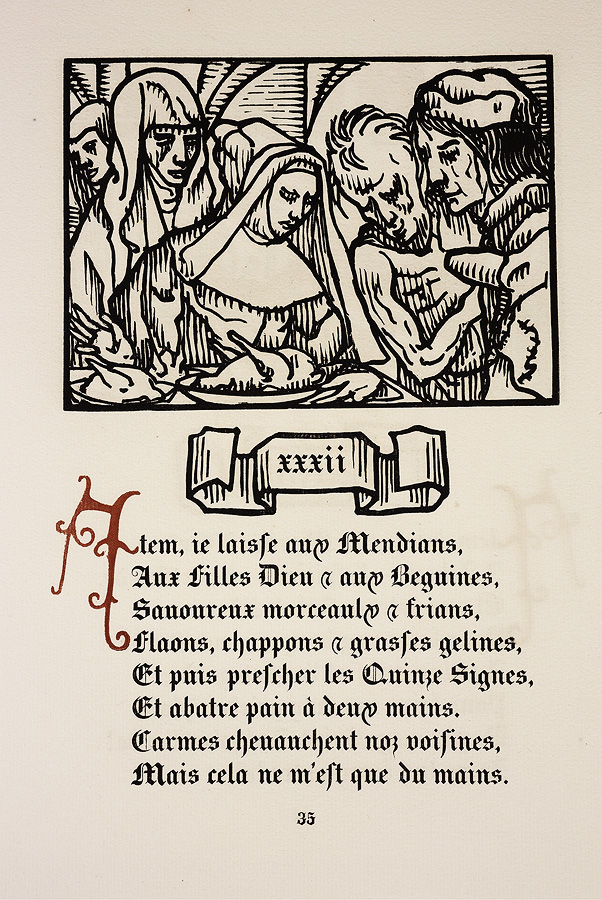 xxxii
Item, ie laisse aux Mendians,
Aux Filles Dieu ⁊ aux Beguines,
Sauoureux morceaulx ⁊ frians,
Flaons, chappons ⁊ grasſes gelines,
Et puis preſcher les Quinze Signes,
Et abatre pain à deux mains.
Carmes cheuauchent noz voiſines,
Mais cela ne m'eſt que du mains.
35